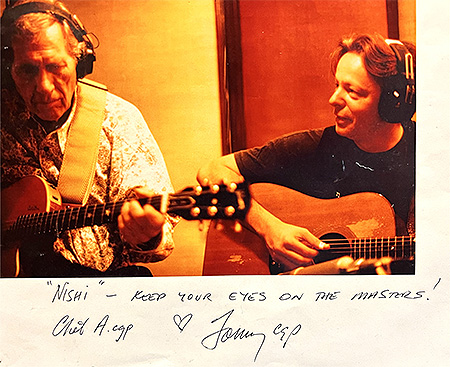 "NISHI" – KEEP YOUR EYES ON THE MASTERS!
Chet A. cgp ♡ Tommy CGP